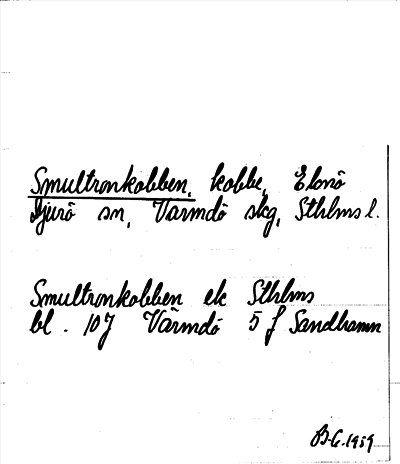 Smultronkobben, kobbe, Elonö
Djurö sn, Värmdö skg, Sthlms l.
Smultronkobben ek Sthlms
bl. 107 Värmdö 5 f Sandhamn
B.G. 1959